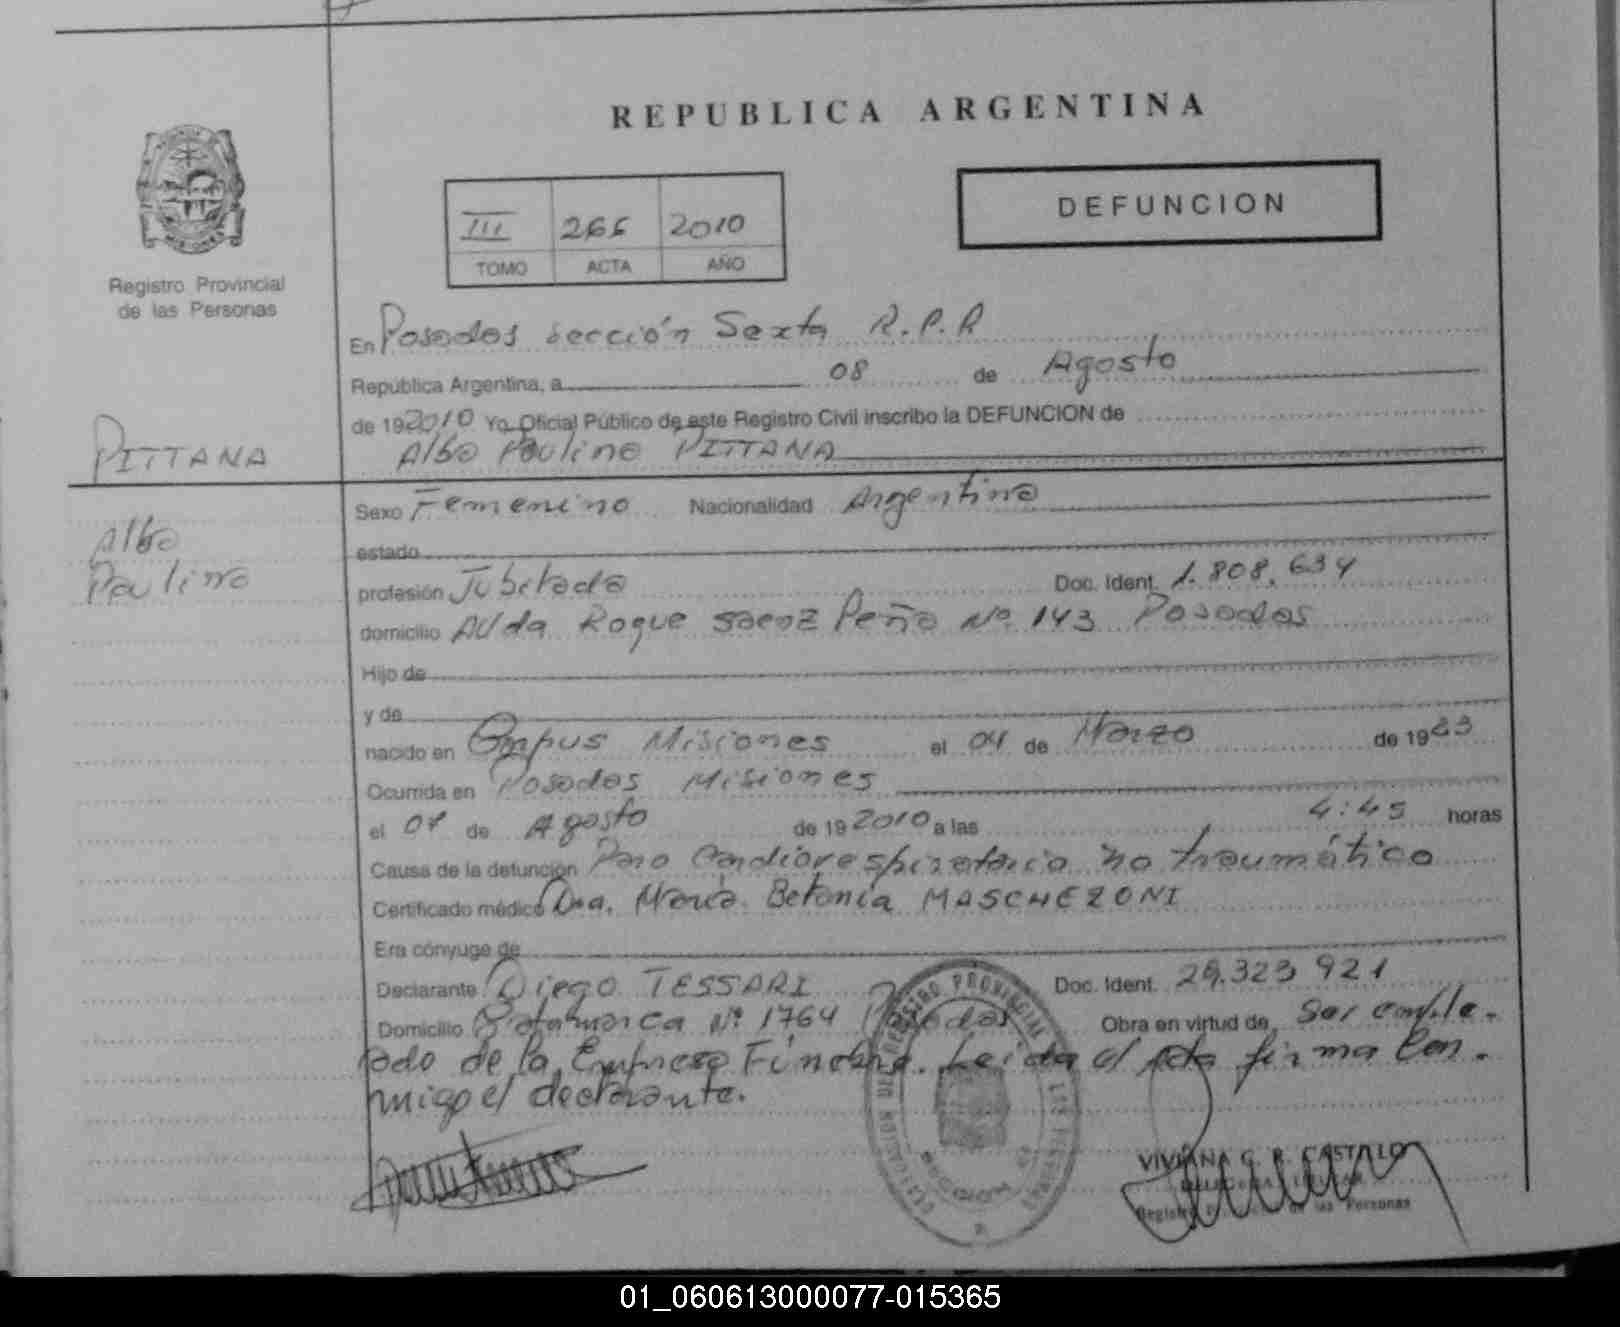 REPUBLICA ARGENTINA
DEFUNCION
III 266 2010
TOMO ACTA AÑO
Registro Provincial
de las Personas
En Posadas sección Sexta R.P.P
República Argentina, a 08 de Agosto
de 192010 Yo Oficial Público de este Registro Civil inscribo la DEFUNCION de
PITTANA
Alba Paulina PITTANA
Sexo Femenino Nacionalidad Argentina
Alba
estado
Paulina
profesión Jubilada Doc. Ident. 1.808.634
domicilio AVda Roque Saenz Peña Nº 143 Posadas
Hijo de
y de
nacido en Campus Misiones el 04 de Marzo de 1923
Ocurrida en Posadas Misiones
el 07 de Agosto de 192010 a las 4:45 horas
Causa de la defunción Paro Cardiorespiratorio no traumático
Certificado médico Dra. María Betania MASCHEZONI
Era cónyuge de
Declarante Diego TESSARI Doc. Ident. 29.323.921
Domicilio Catamarca Nº 1764 Posadas Obra en virtud de ser emple-
ado de la Empresa Fúnebre. Leída el Acta firma Con-
migo el declarante.
REGISTRO PROVINCIAL DE LAS PERSONAS
VIVIANA G. R. CASTILLO
Registro de las Personas
01_060613000077-015365